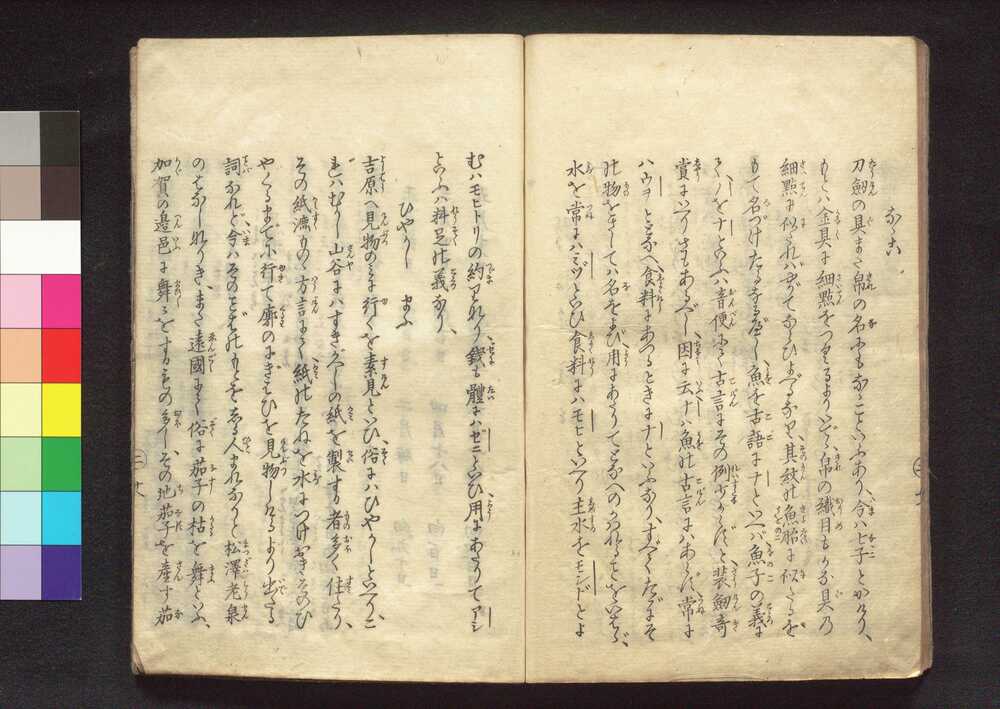 なゝこ
刀劔の具また帛の名にもなゝこといふあり、今ハ七子とかけり、
もとハ金具に細點をつくるよりいでゝ帛の織目もかな具乃
細點に似たれハおしてならひよべるなり、其紋の魚胎に似たるを
もて名づけたるなるべし、魚を古語にナといへバ魚子の義に
てナノをナゝといふハ音便にて古言にその例少からずと装劔奇
賞にいへり、さもあるべし、因に云ナハ魚の古言にハあらず、常に
ハウヲととなへ食料にあつるときにナといふなり、すべてたゞにそ
の物をさしてハ名をよび用にあたりてとなへのかはれることをいはゞ、
水を常にハミヅといひ食料にハモヒといへり主水をモンドとよ
むハモヒトリの約まれり、錢も體にハゼニといひ用にあたりてアシ
といふハ料足の義なり、
ひやかし まふ
吉原へ見物のミに行くを素見といひ俗にハひやかしといへり、こ
れハむかし山谷にハすきがへしの紙を製する者多く住たり、
その紙漉ものゝ方言にて紙のたねを水につけおきそのひ
やくるまでに行て廓のにぎはひを見物しけるより出たる
詞なれど今ハそのことばのもとをしる人まれなりと松澤老泉
のはなしなりき、また遠國にてハ俗に茄子の枯を舞といふ、
加賀の邉邑に舞〻をするもの多し、その地茄子を産す茄